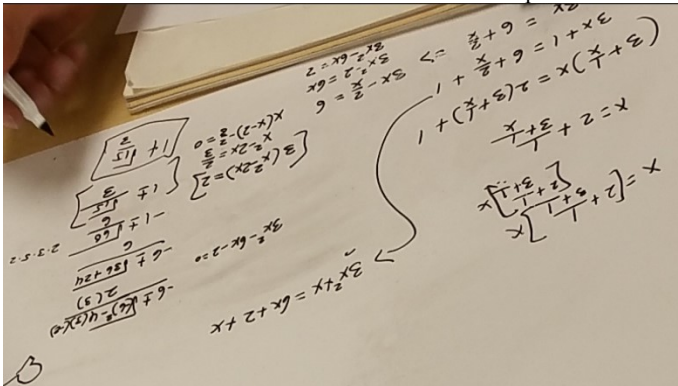 x = [2 + 1/(3 + 1/[2 + 1/(3 + 1/x
x = 2 + 1/(3 + 1/x)
(3 + 1/x) x = 2(3 + 1/x) + 1
3x + 1 = 6 + 2/x + 1
3x = 6 + 2/x
=> 3x - 2/x = 6
3x² - 2 = 6x
3x² - 6x = 2
[3(x² - 2x) = 2]
x² - 2x = 2/3
x(x - 2) - 2/3 = 0
3x² + x = 6x + 2 + x
3x² - 6x - 2 = 0
-6 ± √(6)² - 4(3)(-2)
2(3)
-6 ± √36 + 24
6
-1 ± √60
6
2·3·5·2
1 ± √15
3
1 + √15
2